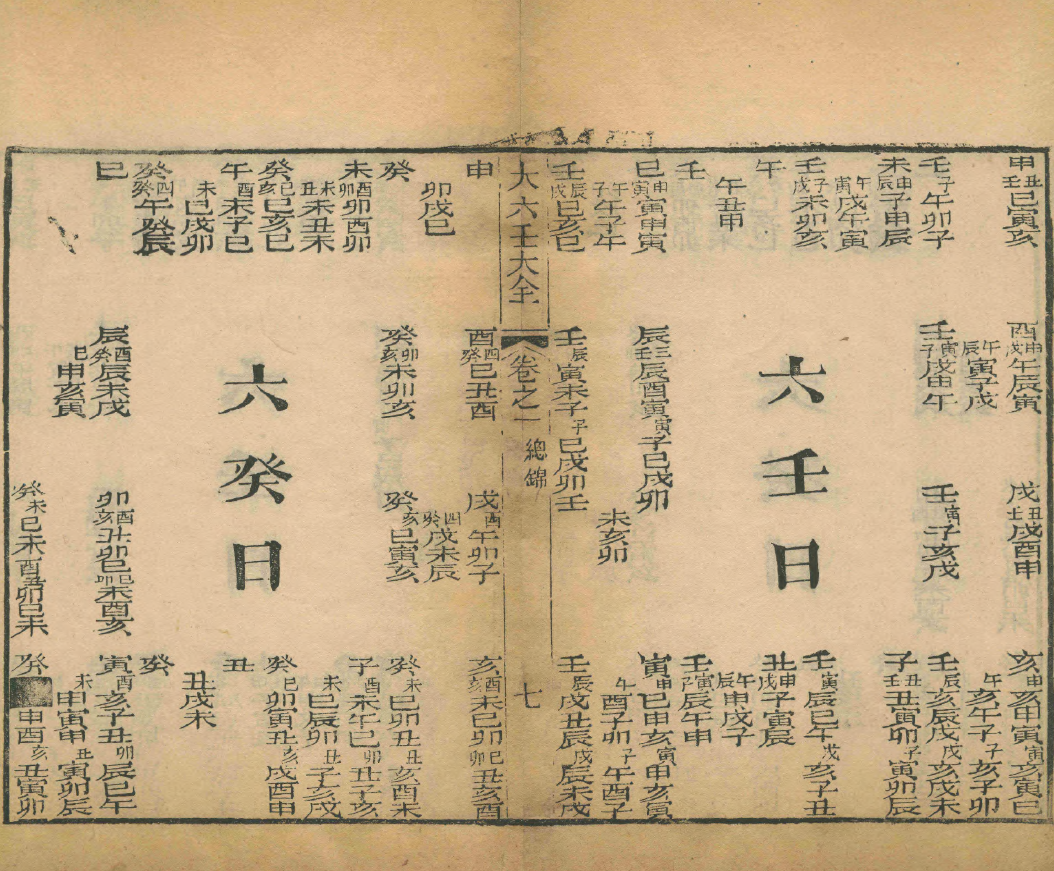 申丑壬巳寅亥 酉申戌午辰寅 戌丑壬戌酉申 亥申亥申寅寅亥寅巳
午辰寅子戌 午亥午子子亥子卯
壬子午卯子 壬寅子戌申午 壬寅子亥戌 壬辰亥辰戌戌亥戌未
未申辰子申辰 子丑壬丑寅卯子寅卯辰
寅午戌午寅
壬子戌未卯亥 壬寅辰巳午戌亥子丑
六壬日
午 丑申戌子寅辰
午丑申 午辰申戌子
壬 壬寅辰午申
巳申寅寅申寅 辰三壬辰酉寅寅子巳戌卯 寅申巳申亥寅申亥寅
午子午子午 未亥卯 午酉子卯子午酉子
壬辰戌巳亥巳 壬辰寅未子午巳戌卯壬 壬辰戌丑辰戌辰未戌
大六壬大全 卷之一 總錦 七
申 酉四癸巳丑酉 戌酉午卯子 亥酉亥未巳卯巳卯丑亥酉
卯戌巳 四癸戌未辰
癸 癸卯亥未卯亥 癸亥巳寅亥 癸未巳卯丑丑亥酉未
未酉卯卯酉卯 子酉未午巳卯丑子亥
未丑未丑未 未巳辰卯丑子亥戌
癸巳亥巳亥巳 癸巳卯寅丑亥戌酉申
六癸日
午酉未子巳 丑
未巳戌卯 丑戌未
癸四癸午癸辰 癸
巳 辰酉癸辰未戌 卯酉亥丑卯巳巳卯未酉亥 寅酉亥子丑卯辰巳午
巳申亥寅 未申寅申丑寅卯辰
癸未巳未酉丑卯巳未 癸申酉亥丑寅卯